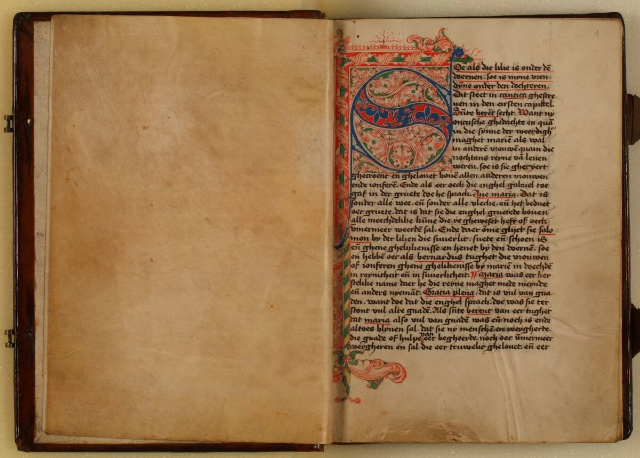 Oe als die lilie is onder dē
doernen. soe is mijne vrien
dyne onder den dochteren.
Dit steet in cantica ghescre
uen in den eirsten capittel.
Sūte berēt secht. Want ny
oncusche ghedichte en quā
in die synne der weerdigh
maghet mariē als wal
in anderē vrouwē quam die
nochtans reyne vā leuen
weren. soe is sie gheciert
ghecroent eñ ghelouet bouē allen anderen vrouwen
ende ionferē. Ende als oer oeck die enghel gabriel toe
gaf in der gruete doe he sprack. Aue maria. Dat is
sonder alle wee. eñ sonder alle vlecke. eñ het beduet
oec gruete. dat is dat sie die enghel gruetede bouen
alle menschelike die ye ghewesēt heft of oeck
vmermeer weerdē sal. Ende daer ōme glijct sie salo
mon by der lilien die suuerlic. suete eñ schoen is
eñ ghene ghelikenisse en heuet by den doernē. soe
en hebbē oec als bernardus tughet die vrouwen
of ionferen ghene ghelikenisse by mariē in doechdē
in reynicheit eñ in suuerlicheit. maria was eer ker
stelike name daer he die reyne maghet mede nuemde
eñ anders nyemāt. Gracia plena. dat is vul van gna
den. want doe dat die enghel sprack. doe was sie ter
stont vul alre gnadē. Als sūte berent van oer tughet
dat maria also vul van gnadē was eñ noch is ende
altoes bliuen sal. dat sie ny menschē en weygherde.
die gnade of hulpe van oer begheerde. noch oec vmermeer
weygheren en sal die oer truwelic ghelouet. eñ oer